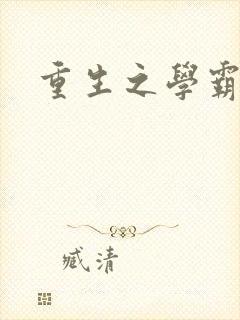 重生之學霸
臧清